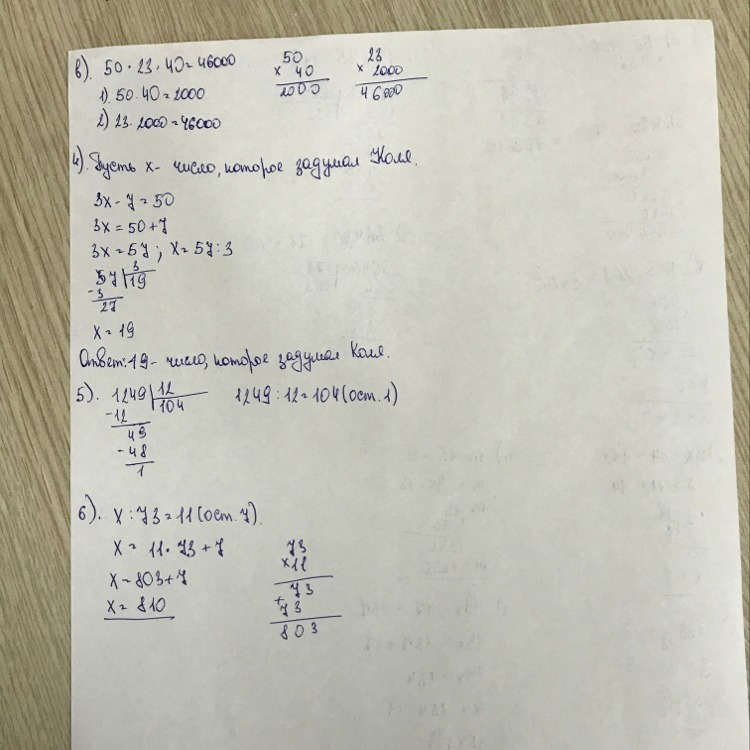 в). 50 · 23 · 40 = 46000
50
× 40
2000
23
× 2000
46000
1). 50 · 40 = 2000
2) 23 · 2000 = 46000
4). Пусть x - число, которое задумал Коля.
3x - 7 = 50
3x = 50 + 7
3x = 57 ; x = 57 : 3
57 | 3
- 3 | 19
27
x = 19
Ответ: 19 - число, которое задумал Коля.
5). 1249 | 12
- 12 | 104
49
- 48
1
1249 : 12 = 104 (ост. 1)
6). x : 73 = 11 (ост. 7)
x = 11 · 73 + 7
x = 803 + 7
x = 810
73
× 11
73
+ 73
803